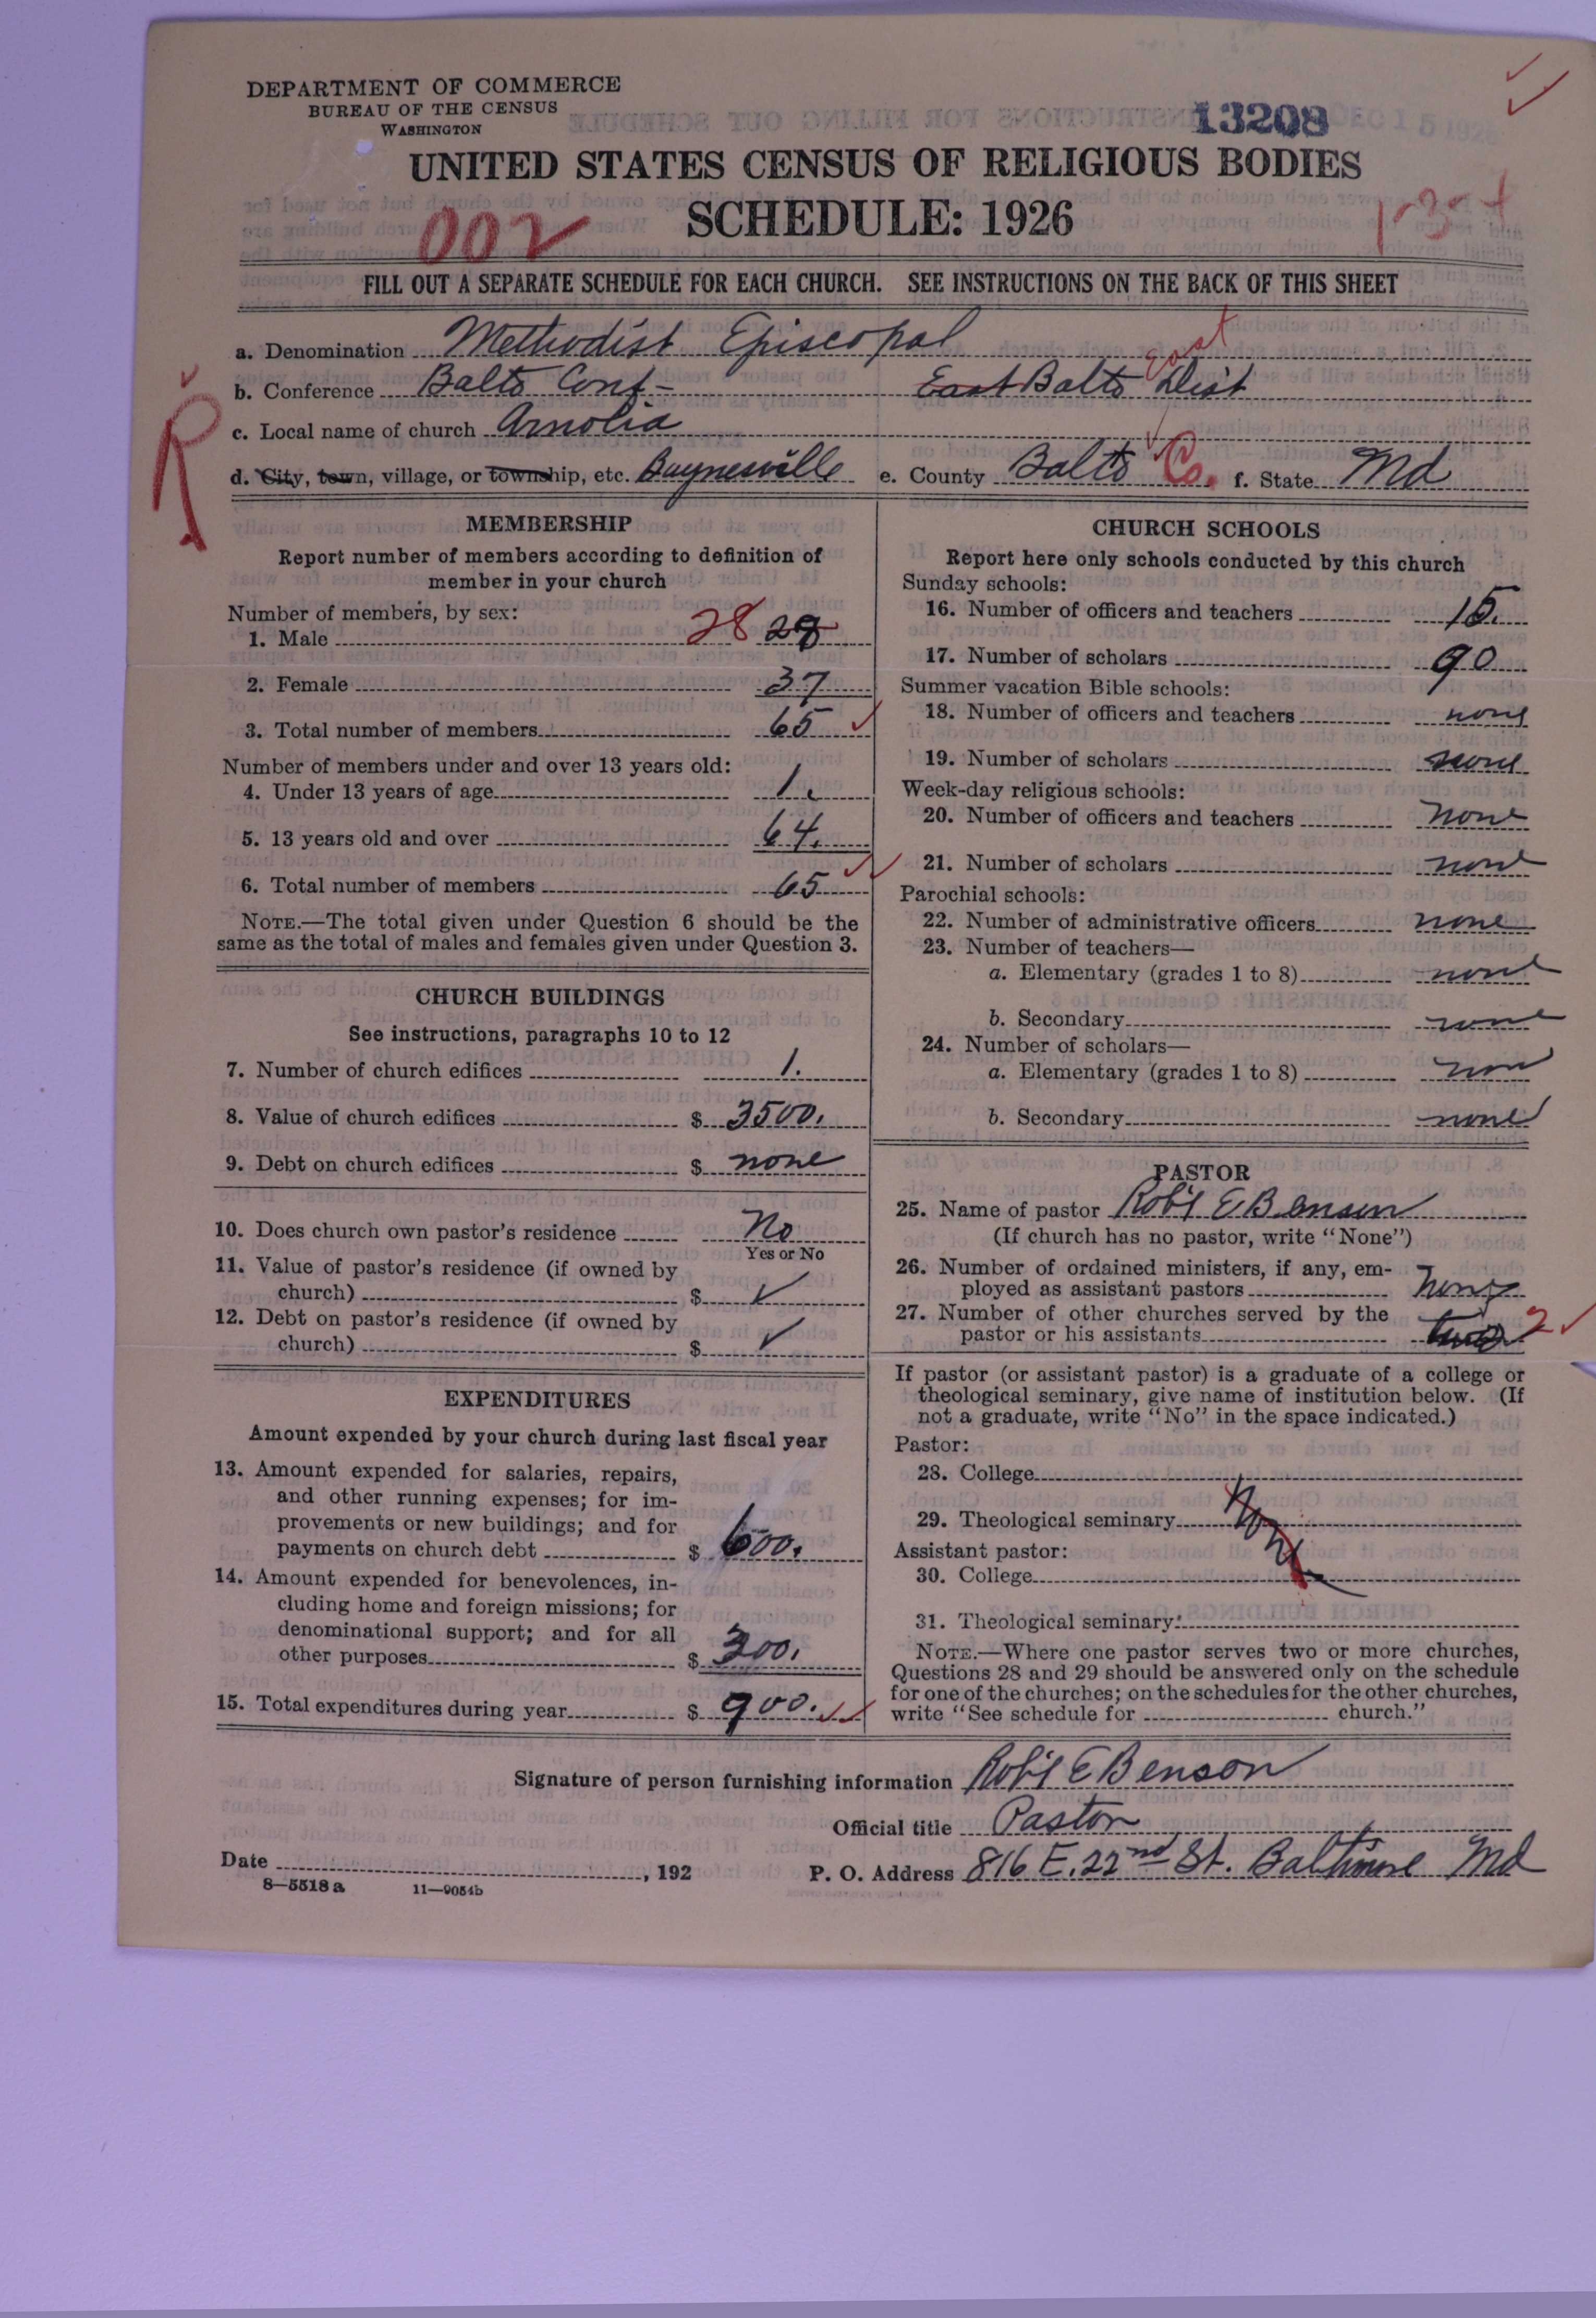 DEPARTMENT OF COMMERCE
BUREAU OF THE CENSUS
WASHINGTON
13208
DEC 15 1926
UNITED STATES CENSUS OF RELIGIOUS BODIES
SCHEDULE: 1926
002
FILL OUT A SEPARATE SCHEDULE FOR EACH CHURCH. SEE INSTRUCTIONS ON THE BACK OF THIS SHEET
a. Denomination Methodist Episcopal
b. Conference Balto Conf- East Balto East Dist
c. Local name of church Arnolia
d. City, town, village, or township, etc. Baynesville e. County Balto Co. f. State Md
R
MEMBERSHIP
Report number of members according to definition of
member in your church
Number of members, by sex:
1. Male 28 28
2. Female 37
3. Total number of members 65
Number of members under and over 13 years old:
4. Under 13 years of age 1.
5. 13 years old and over 64.
6. Total number of members 65
NOTE.—The total given under Question 6 should be the
same as the total of males and females given under Question 3.
CHURCH BUILDINGS
See instructions, paragraphs 10 to 12
7. Number of church edifices 1.
8. Value of church edifices $ 3500.
9. Debt on church edifices $ none
10. Does church own pastor's residence No
Yes or No
11. Value of pastor's residence (if owned by
church) $ ✓
12. Debt on pastor's residence (if owned by
church) $ ✓
EXPENDITURES
Amount expended by your church during last fiscal year
13. Amount expended for salaries, repairs,
and other running expenses; for im-
provements or new buildings; and for
payments on church debt $ 600.
14. Amount expended for benevolences, in-
cluding home and foreign missions; for
denominational support; and for all
other purposes $ 300.
15. Total expenditures during year $ 900.
CHURCH SCHOOLS
Report here only schools conducted by this church
Sunday schools:
16. Number of officers and teachers 15.
17. Number of scholars 90
Summer vacation Bible schools:
18. Number of officers and teachers none
19. Number of scholars none
Week-day religious schools:
20. Number of officers and teachers none
21. Number of scholars none
Parochial schools:
22. Number of administrative officers none
23. Number of teachers—
a. Elementary (grades 1 to 8) none
b. Secondary none
24. Number of scholars—
a. Elementary (grades 1 to 8) none
b. Secondary none
PASTOR
25. Name of pastor Rob't E Benson
(If church has no pastor, write "None")
26. Number of ordained ministers, if any, em-
ployed as assistant pastors none
27. Number of other churches served by the
pastor or his assistants two 2
If pastor (or assistant pastor) is a graduate of a college or
theological seminary, give name of institution below. (If
not a graduate, write "No" in the space indicated.)
Pastor:
28. College
29. Theological seminary None
Assistant pastor:
30. College
31. Theological seminary
NOTE.—Where one pastor serves two or more churches,
Questions 28 and 29 should be answered only on the schedule
for one of the churches; on the schedules for the other churches,
write "See schedule for church."
Signature of person furnishing information Rob't E Benson
Official title Pastor
Date , 192 P. O. Address 816 E. 22nd St. Baltimore Md
8—5518 a 11—9054b